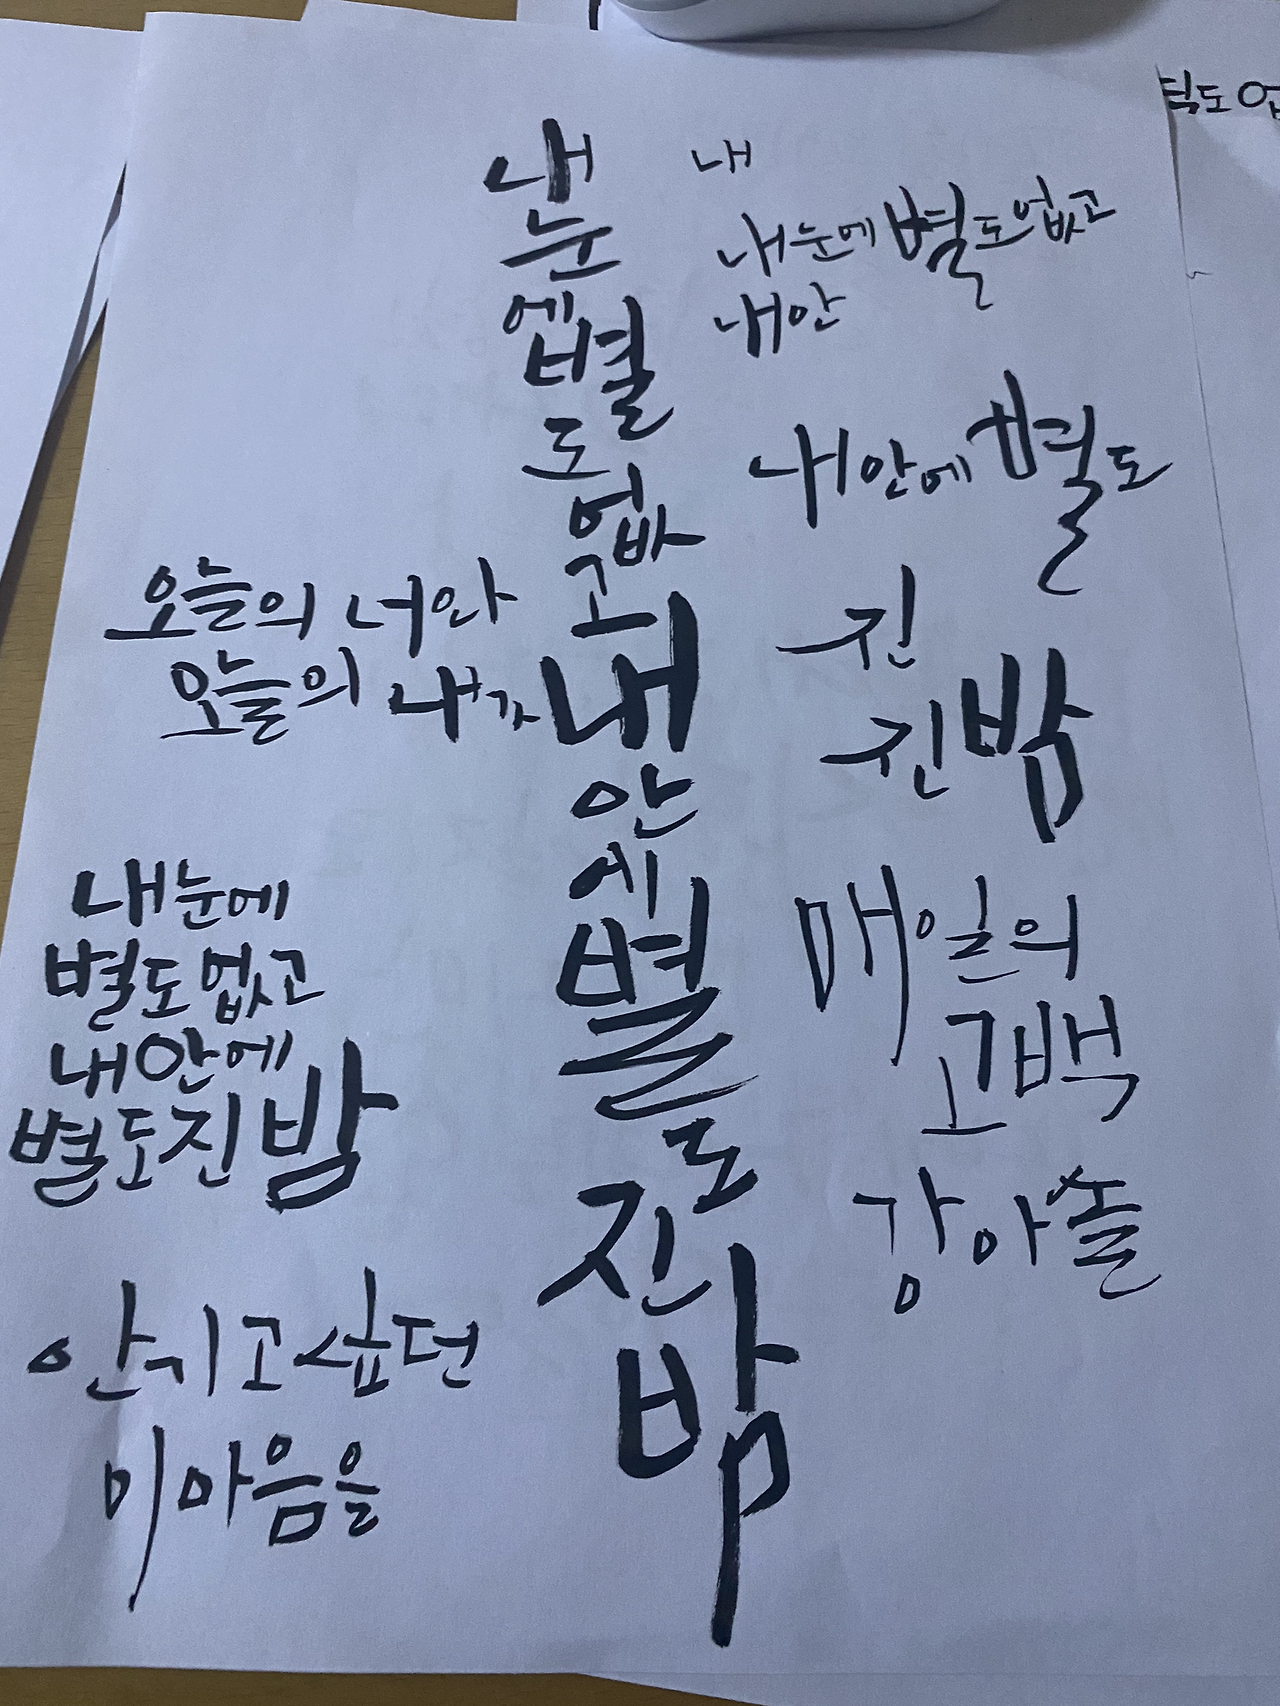 내
눈
에 별
도
없
고
내
안
에
별
도
진
밤
내
내 눈에 별도 없고
내 안
내 안에 별도
진
진 밤
매일의
고백
강아솔
오늘의 너와
오늘의 내가
내 눈에
별도 없고
내 안에
별도 진 밤
안기고 싶던
이 마음을